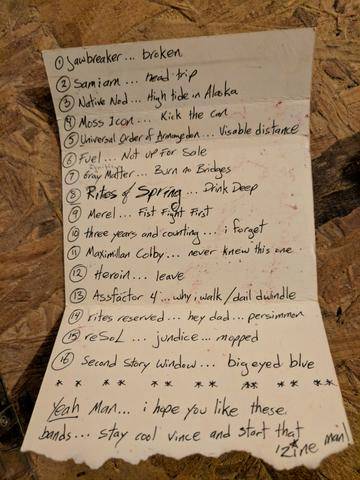 ① Jawbreaker... broken
② Samiam... head trip
③ Native Nod... High tide in Alaska
④ Moss Icon... Kick the can
⑤ Universal Order of Armagedon... Visable distance
⑥ Fuel... Not up For Sale
⑦ Gray Matter... Burn no Bridges
⑧ Rites of Spring... Drink Deep
⑨ Merel... Fist Fight First
⑩ three years and counting... i forget
⑪ Maximillan Colby... never knew this one
⑫ Heroin... leave
⑬ Assfactor 4... why i walk / dail dwindle
⑭ rites reserved... hey dad... persimmon
⑮ reSoL... jundice... mopped
⑯ Second Story Window... big eyed blue
* * * * * * * * * * *
Yeah Man... i hope you like these
bands... stay cool vince and start that
'zine man!